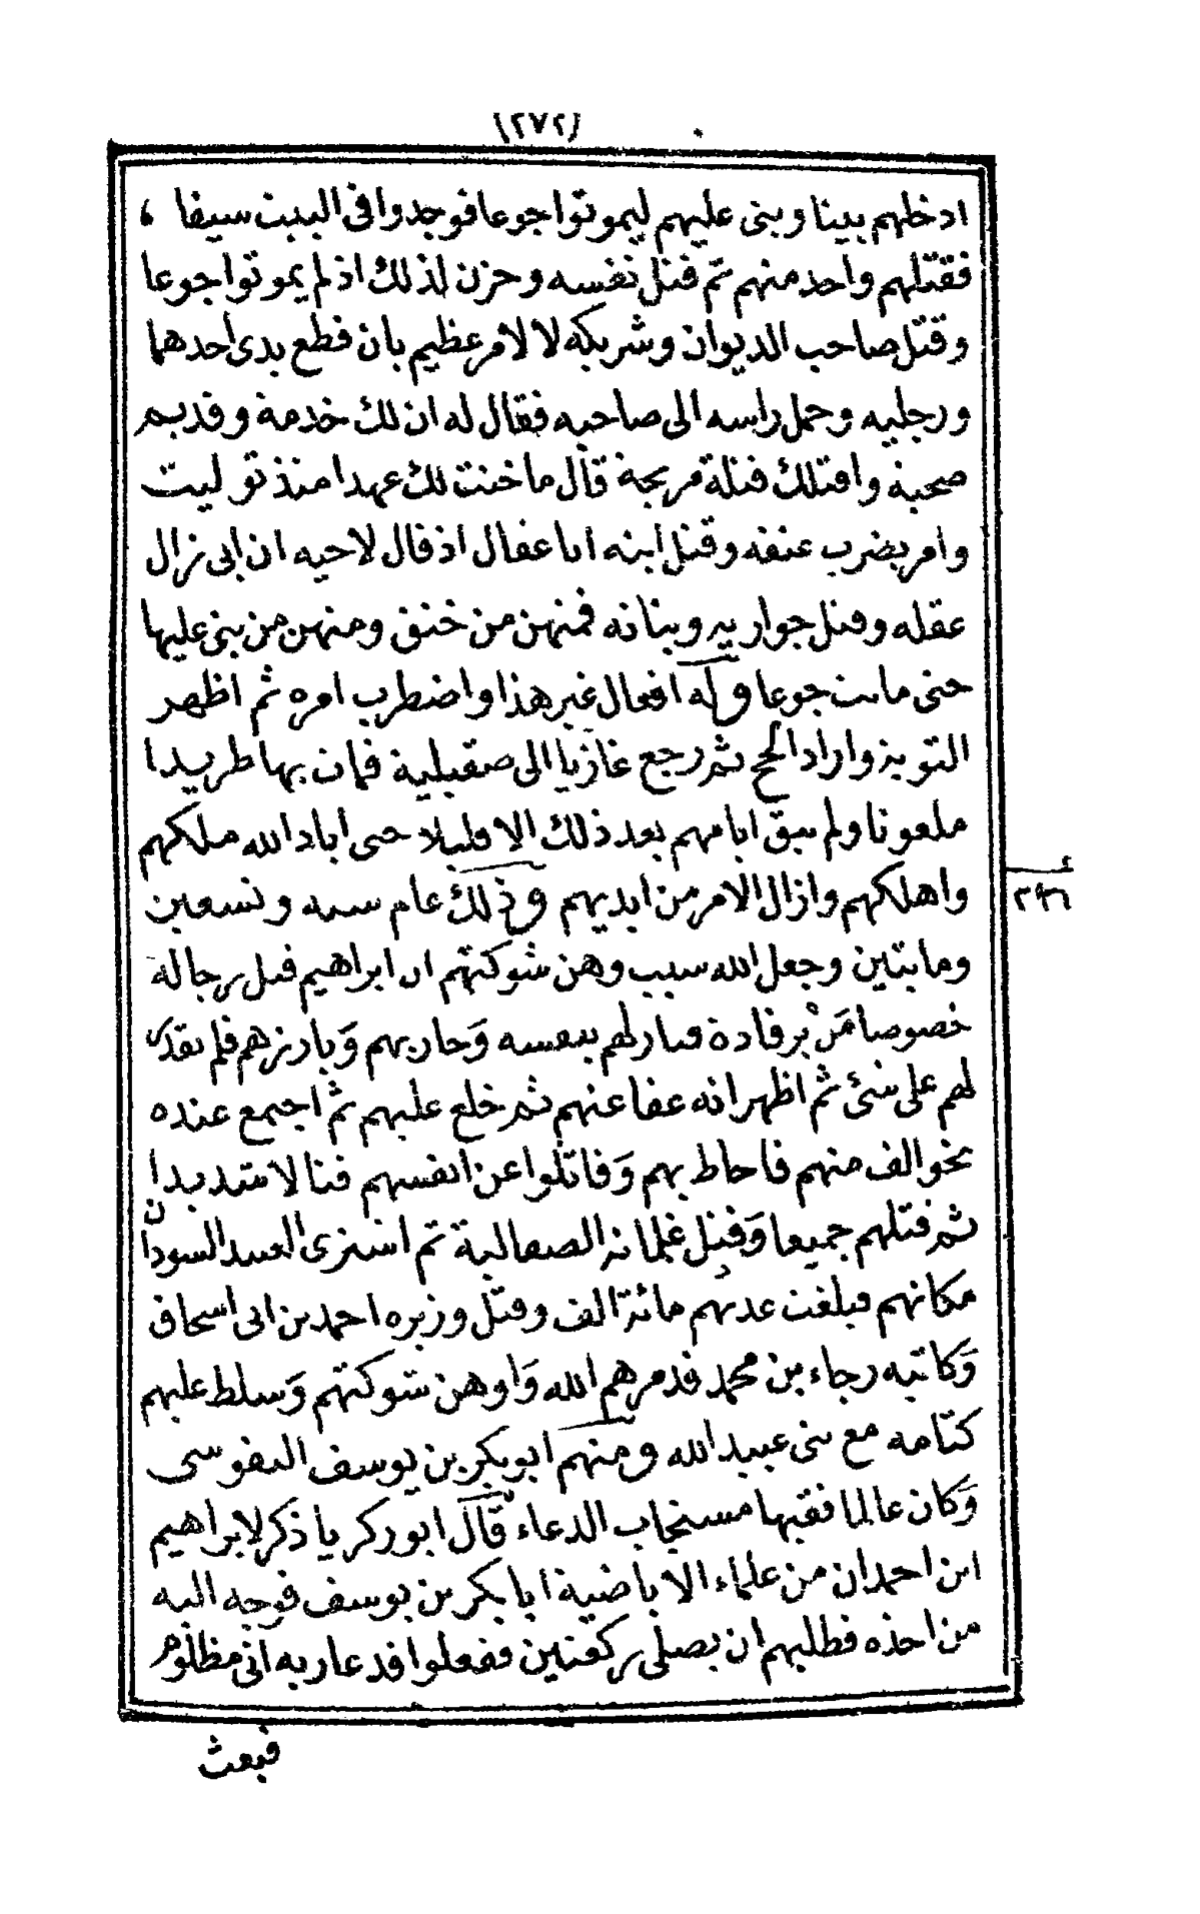 (٢٧٢)
ادخلهم بيتا وبنى عليهم ليموتوا جوعا فوجدوا فى البيت سيفا ،
فقتلهم واحد منهم ثم قتل نفسه وحزن لذلك اذ لم يموتوا جوعا
وقتل صاحب الديوان وشريكه لا لامر عظيم بان قطع يدى احدهما
ورجليه وحمل راسه الى صاحبه فقال له ان لك خدمة وقديم
صحبة واقتلك قتلة مريحة قال ما خنت لك عهدا منذ توليت
وامر بضرب عنقه وقتل ابنه ابا عقال اذ قال لاخيه ان ابى زال
عقله وقتل جواريه وبناته فمنهن من خنق ومنهن من بنى عليها
حتى ماتت جوعا وله افعال غير هذا واضطرب امره ثم اظهر
التوبة واراد الحج ثم رجع غازيا الى صقيلية فمات بها طريدا
ملعونا ولم تبق ايامهم بعد ذلك الا قليلا حتى اباد الله ملكهم
واهلكهم وازال الامر من ايديهم وذلك عام ستة وتسعين
ومايتين وجعل الله سبب وهن شوكتهم ان ابراهيم قتل رجاله
خصوصا مَنْ برقادة فبارلهم بنفسه وَحاربهم وَبارزهم فلم يقدر
لهم على شئ ثم اظهر انه عفا عنهم ثم خلع عليهم ثم اجتمع عنده
نحو الف منهم فاحاط بهم وَقاتلوا عن انفسهم قتالا شديدا
ثم قتلهم جميعا وَقتل غلمانه الصقالبة ثم اشترى العبيد السودان
مكانهم فبلغت عدتهم مائة الف وقتل وزيره احمد بن ابى اسحاق
وَكاتبه رجاء بن محمد فدمرهم الله وَاوهن شوكتهم وَسلط عليهم
كتامه مع بنى عبيد الله ومنهم ابو بكر بن يوسف النفوسى
وَكان عالما فقيها مستجاب الدعاء قال ابو زكرياء ذكر لابراهيم
ابن احمد ان من علماء الاباضية ابا بكر بن يوسف فوجه اليه
من اخذه فطلبهم ان يصلى ركعتين ففعلوا فدعا ربه انى مظلوم
فبعث